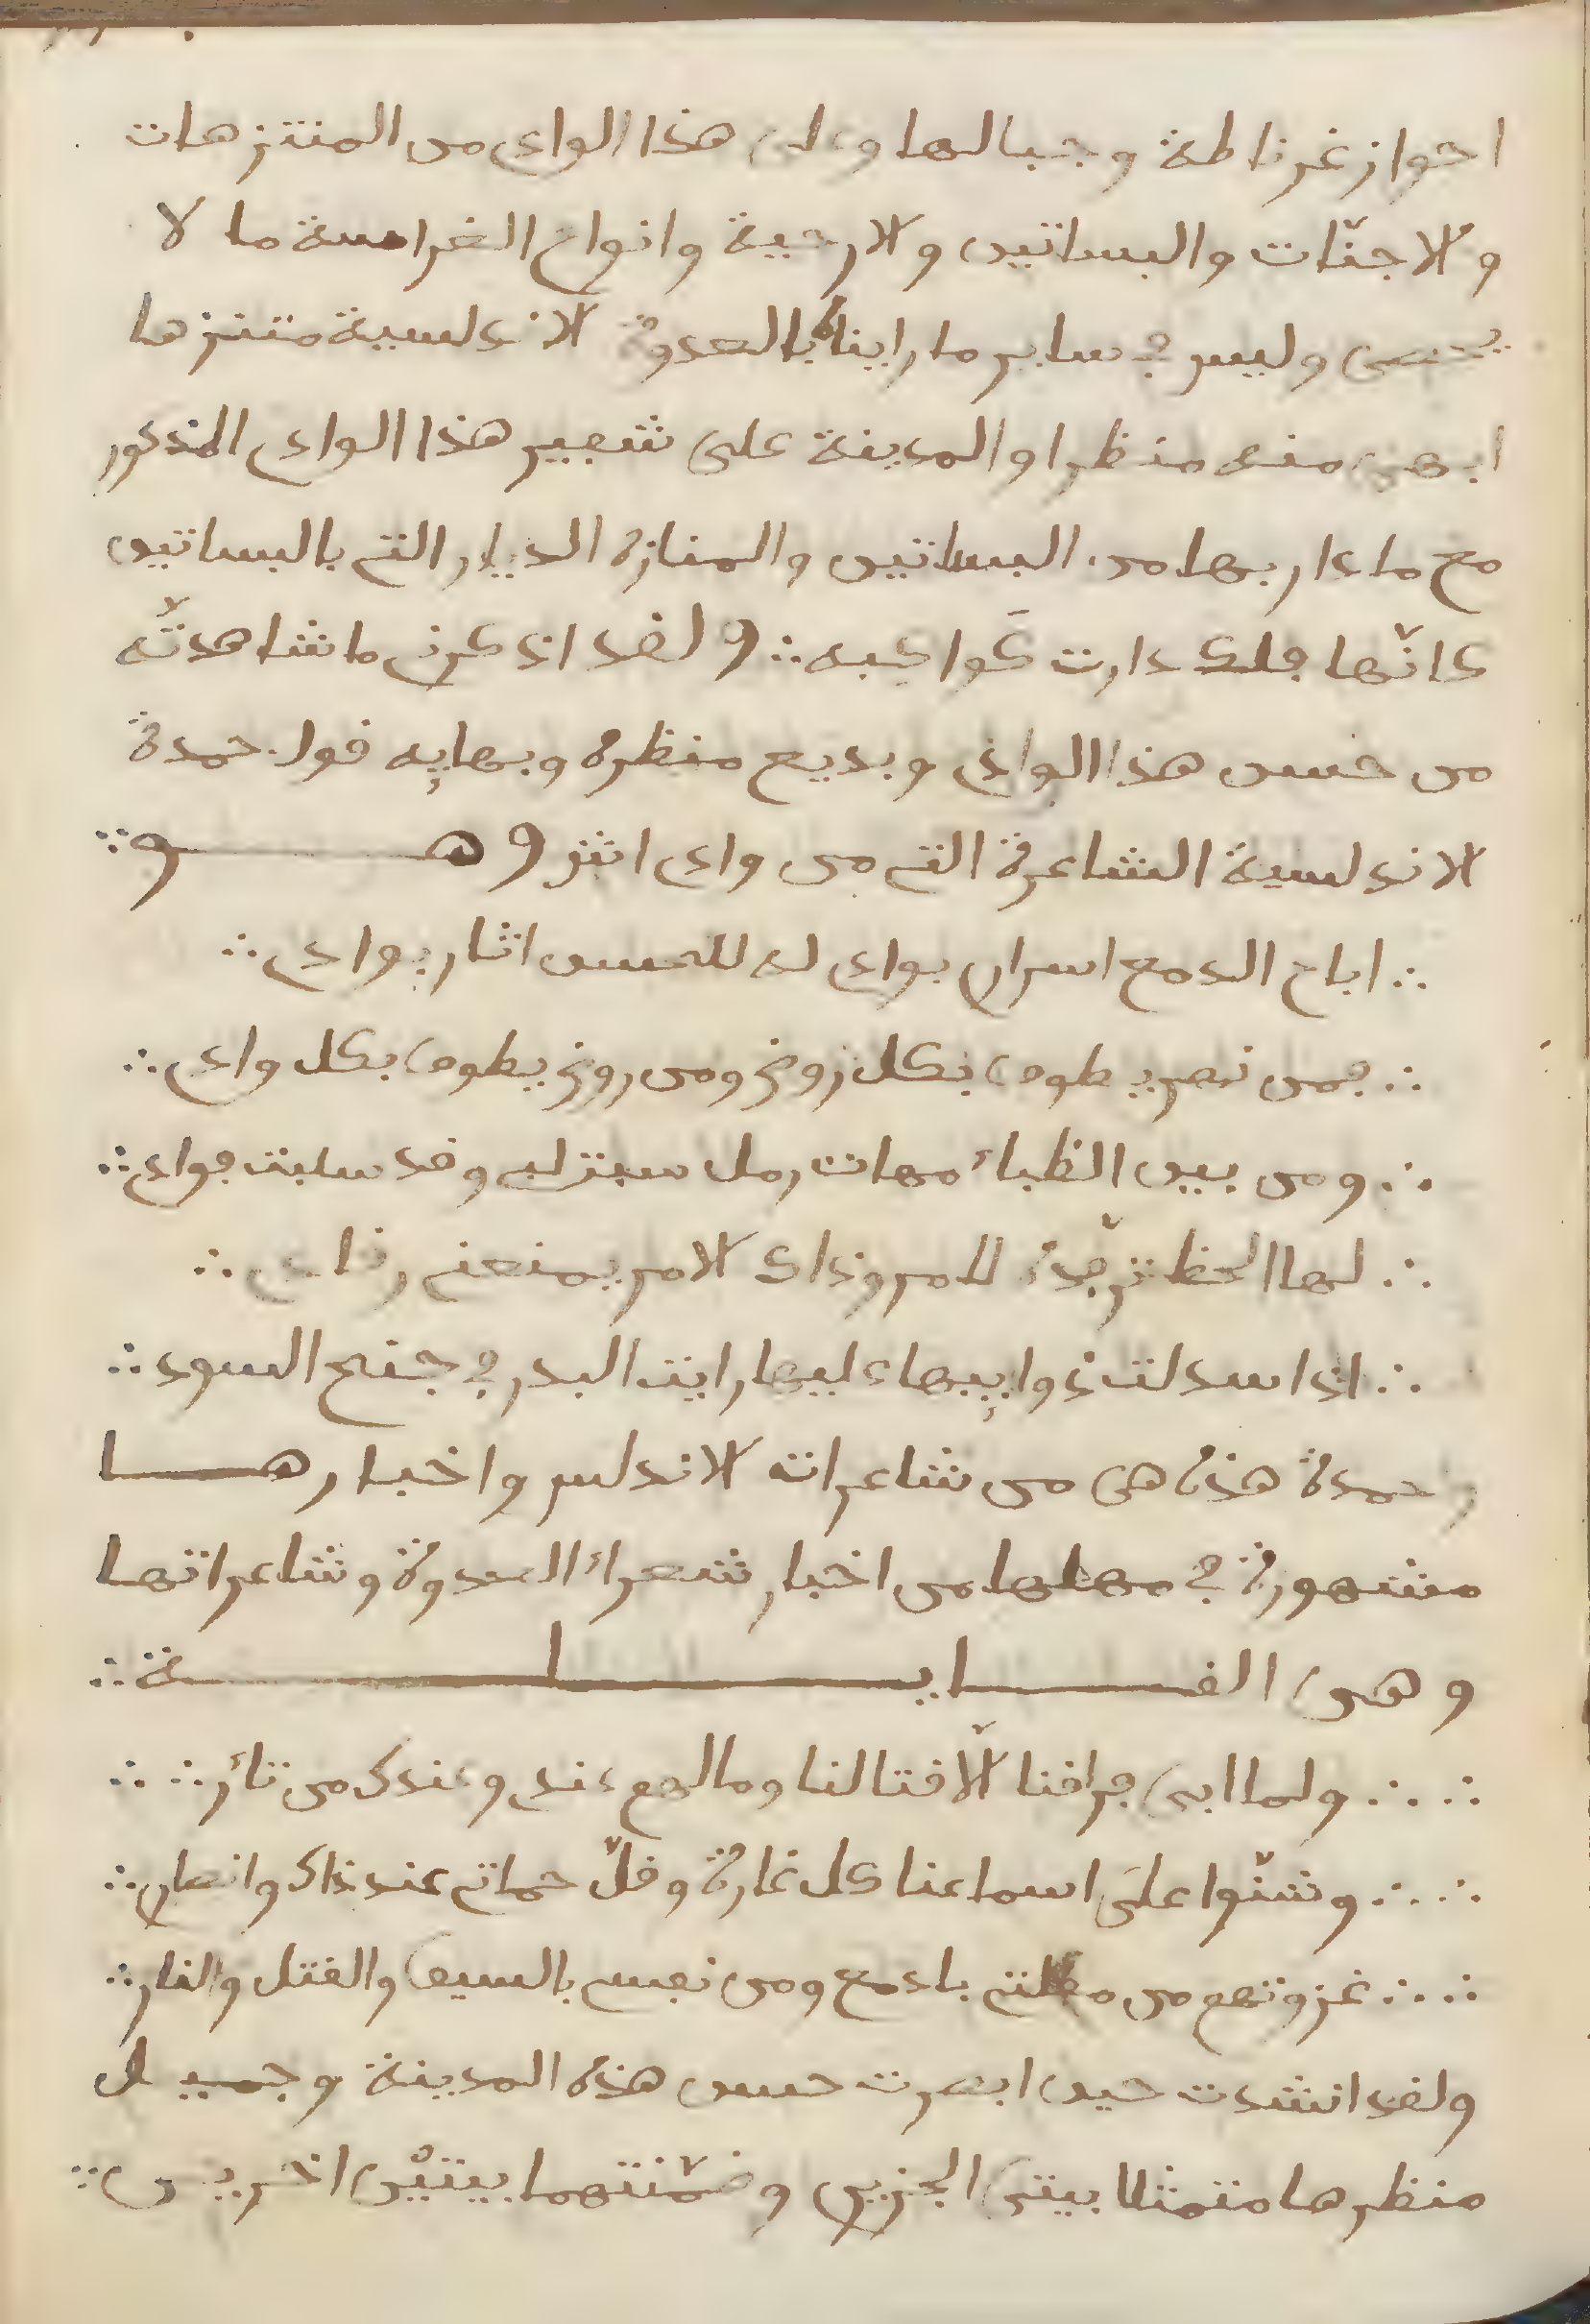 احواز غرناطة وجبالها وعلى هذا الوادى من المنتزهات
والاجنّات والبساتين والارحية وانواع الغراسة ما لا
يحصى وليس في ساير ما رايناه بالعدوة الاندلسية متنزها
ابهى منه منظرا والمدينة على شفير هذا الوادى المذكور
مع ما دار بها من البساتين والمنازه الديار التي بالبساتين
كانّها فلك دارت كواكبه ∴ ولقد اذكرنى ما شاهدتّه
من حسن هذا الوادى وبديع منظره وبهايه قول حمدة
الاندلسية الشاعرة التي من وادى اش وهـــو ∴
∴ اباح الدمع اسرارى بوادى له للحسن اثار بوادى ∴
∴ فمن نهر يطوف بكل روض ومن روض يطوف بكل وادى ∴
∴ ومن بين الظباء مهات رمل سبت لبى وقد سلبت فوادى ∴
∴ لها لحظ ترقّده لامر وذاك الامر يمنعنى رقادى ∴
∴ اذا سدلت ذوايبها عليها رايت البدر في جنح السود ∴
وحمدة هذه هى من شاعرات الاندلس واخبارهـــا
مشهورة في محلها من اخبار شعراء العدوة وشاعراتها
وهى القـــايـــلـــة ∴
∴ ∴ ولما ابى فراقنا الّا قتالنا وما لهم عندى وعندك من ثار ∴ ∴
∴ ∴ وشنّوا على اسماعنا كل غارة وقلّ حماتى عند ذاك وانصارى ∴
∴ ∴ غزوتهم من مقلتى بادمع ومن نفسى بالسيف والقتل والنار ∴
ولقد انشدت حين ابصرت حسن هذه المدينة وجميـل
منظرها متمثلا بيتى الجزيرى وضمّنتهما بيتيْن اخريـن ∴